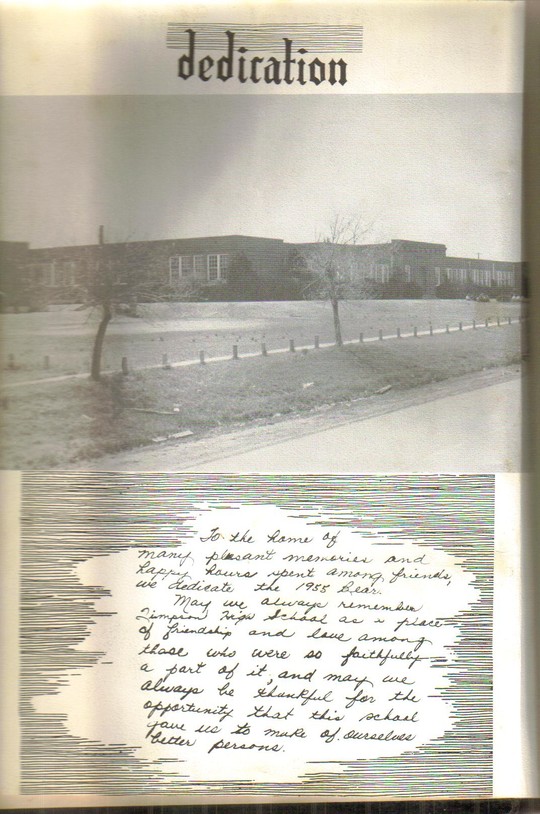 dedication
To the home of
many pleasant memories and
happy hours spent among friends,
we dedicate the 1955 Bear.
May we always remember
Timpson High School as a place
of friendship and love among
those who were so faithfully
a part of it, and may we
always be thankful for the
opportunity that this school
gave us to make of ourselves
better persons.